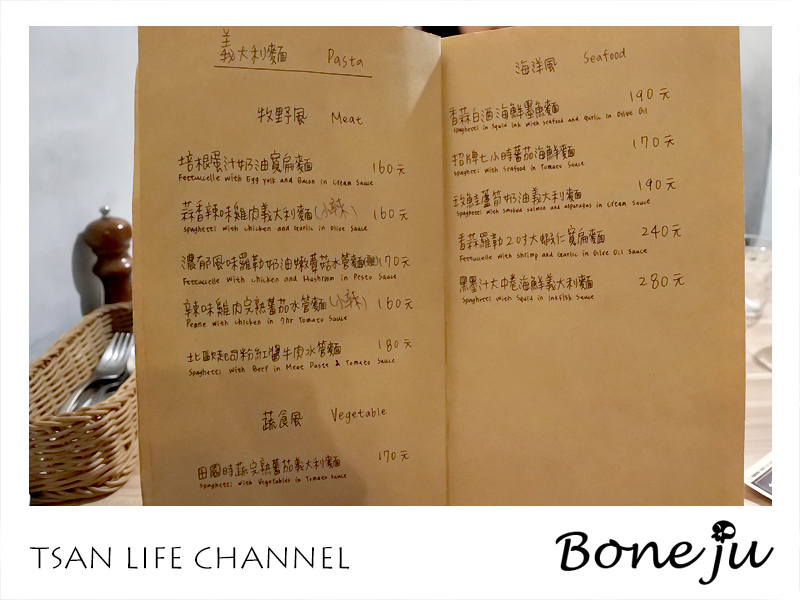 義大利麵 Pasta
牧野風 Meat
培根蛋汁奶油寬扁麵 160元
Fettuccelle with Egg yolk and Bacon in Cream Sauce
蒜香辣味雞肉義大利麵(小辣) 160元
Spaghetti with chicken and Garlic in Olive Sauce
濃郁風味羅勒奶油嫩蘑菇水管麵 170元
Fettuccelle with chicken and Mushroom in Pesto Sauce
辣味雞肉完熟蕃茄水管麵(小辣) 160元
Penne with chicken in 7hr Tomato Sauce
北歐起司粉紅醬牛肉水管麵 180元
Spaghetti with Beef in Meat Paste & Tomato Sauce
蔬食風 Vegetable
田園時蔬完熟蕃茄義大利麵 170元
Spaghetti with Vegetables in Tomato Sauce
海洋風 Seafood
香蒜白酒海鮮墨魚麵 190元
Spaghetti in Squid ink with seafood and Garlic in Olive Oil
招牌七小時蕃茄海鮮麵 170元
Spaghetti with Seafood in Tomato Sauce
玫鮭蘆筍奶油義大利麵 190元
Spaghetti with smoked salmon and asparagus in Cream Sauce
香蒜羅勒20寸大蝦仁寬扁麵 240元
Fettuccelle with Shrimp and Garlic in Olive Oil Sauce
黑墨汁大中卷海鮮義大利麵 280元
Spaghetti with Squid in Inkfish Sauce
TSAN LIFE CHANNEL
Boneju